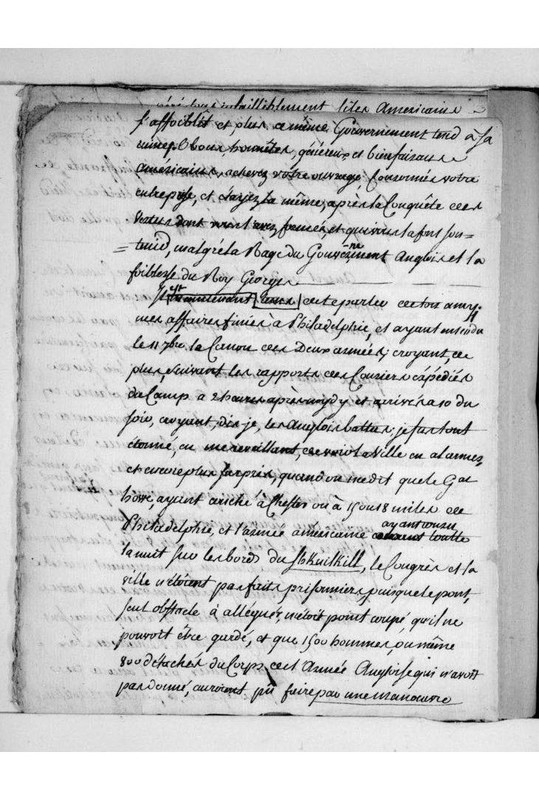 infailliblement si les Americains
s'affoiblit et, plus, ce même Gouvernement tend à sa
ruine; O vous honnêtes, généreux et bienfaisans
Americains, achevez votre ouvrage, Couronnés votre
entreprise, et elargez la même, après la Conquête de ces
vertus dont vous avez
tenüe, malgré la Rage du Gouvernement Anglois et la
foiblesse du Roy George
cette partie
mes affaires finies à Philadelphie, et ayant entendu
le 11 7bre la Canon des Deux armées; croyant, de
plus, suivant les rapports des Couriers expédiés
du Camp à 2 heures après midy et arrivés à 10 du
soir, croyant, dis-je, les Anglois battus; je fus tout
étonné, en me reveillant, de voir la Ville en alarmes,
et encore plus surpris, quand on me dit que le Gal
howe, ayant couché à Chester ou à 15 ou 18 miles de
Philadelphie, et l'armée americaine ayant couru toutte
la nuit sur les bords du Shkuilkill, le Congrès et la
ville n'étoient pas faits prisonniers, puisque le pont,
seul obstacle à alleguer, n'étoit point coupé, qu'il ne
pouvoit être gardé, et que 1500 hommes ou même
800 détachés du Corps de l'Armée Angloise qui n'avoit
pas donné, auroient pû faire par une manœuvre